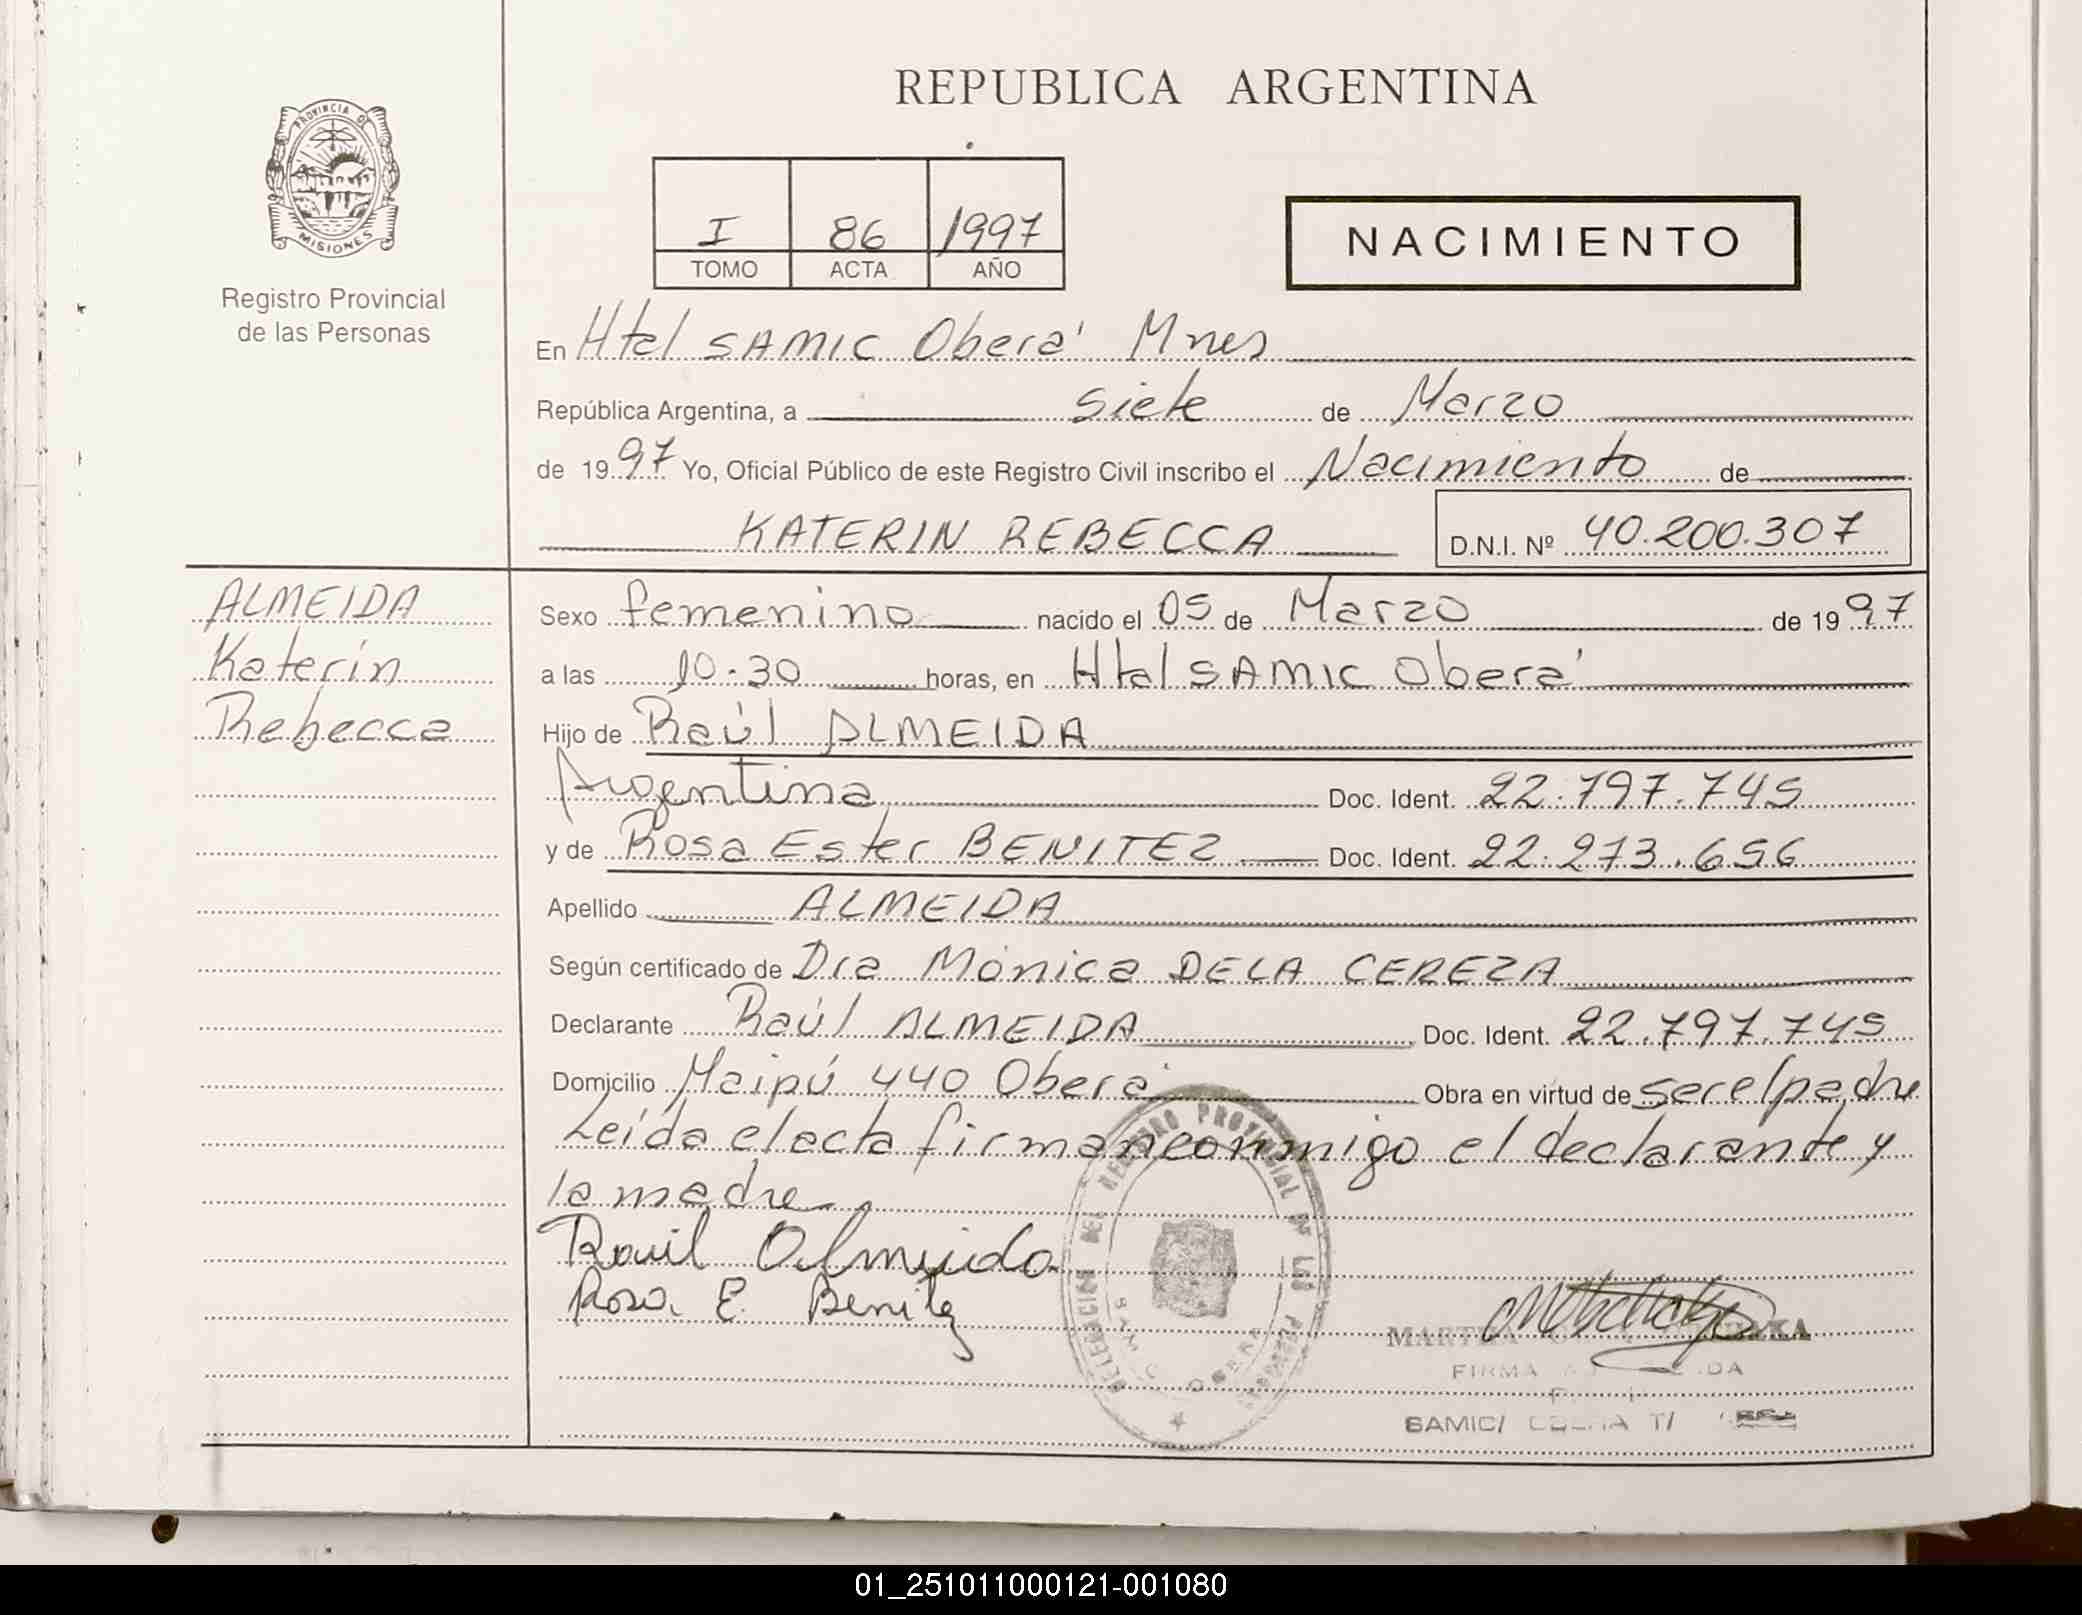 REPUBLICA ARGENTINA
PROVINCIA D
MISIONES
Registro Provincial
de las Personas
I 86 1997
TOMO ACTA AÑO
NACIMIENTO
En Htal SAMIC Oberá Mnes
República Argentina, a siete de Marzo
de 1997 Yo, Oficial Público de este Registro Civil inscribo el Nacimiento de
KATERIN REBECCA D.N.I. Nº 40.200.307
ALMEIDA
Katerin
Rebecca
Sexo femenino nacido el 05 de Marzo de 1997
a las 10.30 horas, en Htal SAMIC Oberá
Hijo de Raúl ALMEIDA
Argentina Doc. Ident. 22.797.745
y de Rosa Ester BENITEZ Doc. Ident. 22.273.656
Apellido ALMEIDA
Según certificado de Dra Mónica DE LA CEREZA
Declarante Raúl ALMEIDA Doc. Ident. 22.797.745
Domicilio Maipú 440 Oberá Obra en virtud de ser el padre
Leída el acta firman conmigo el declarante y
la madre
Raúl Almeida
Rosa E. Benitez
DELEGACIÓN DEL REGISTRO PROVINCIAL DE LAS PERSONAS
SAMIC OBERA
MARTHA
FIRMA
SAMIC/
01_251011000121-001080